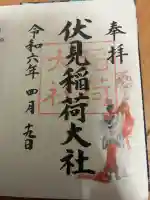 奉拝
伏見稲荷大社
令和六年 四月 十九日